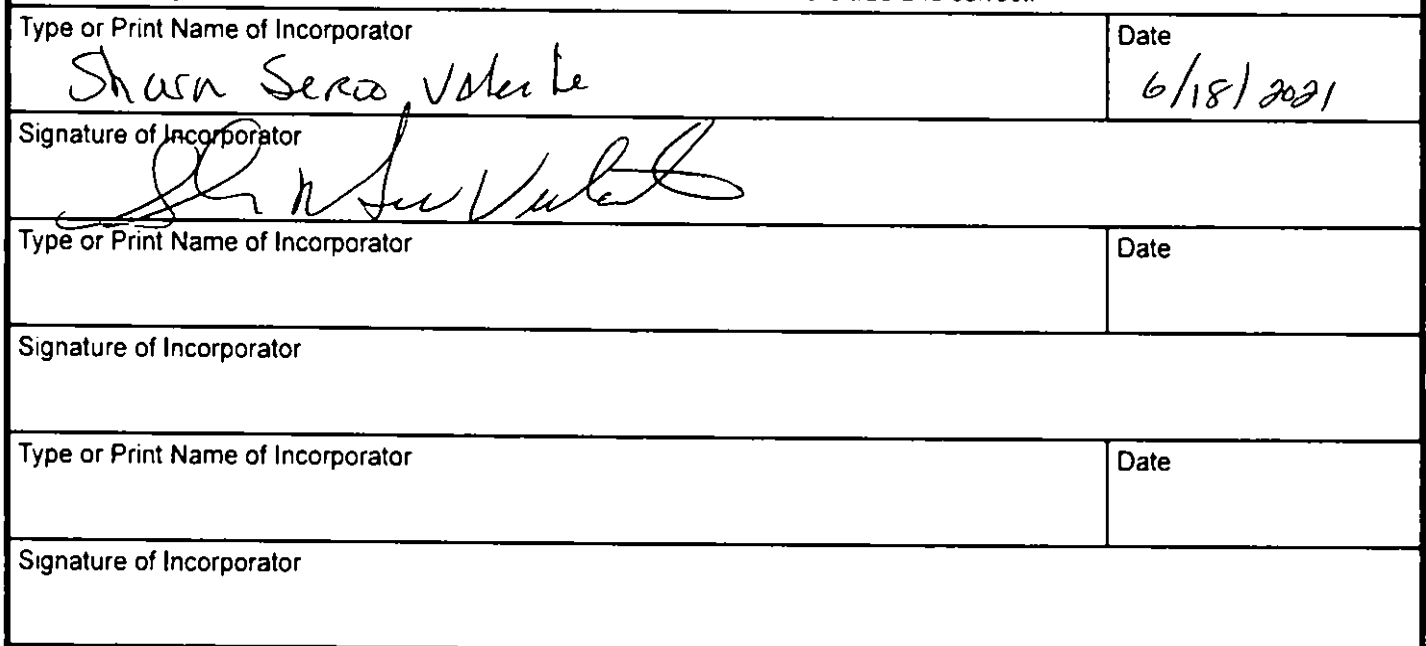 Type or Print Name of Incorporator
Date
Shawn Valente
6/18/2021
Signature of Incorporator
Type or Print Name of Incorporator
Date
Signature of Incorporator
Type or Print Name of Incorporator
Date
Signature of Incorporator